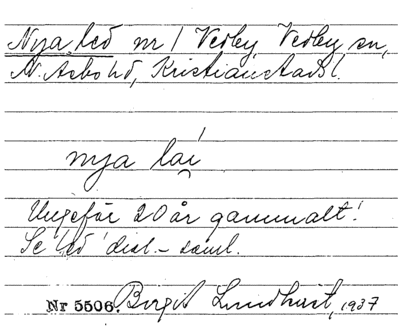 Nya led nr 1 Verby, Verby sn,
N. Asbo hd, Kristianstads l.
nya lai
Ungefär 20 år gammalt!
Se 'led' dial.-saml.
Nr 5506. Birgit Lundkvist, 1937